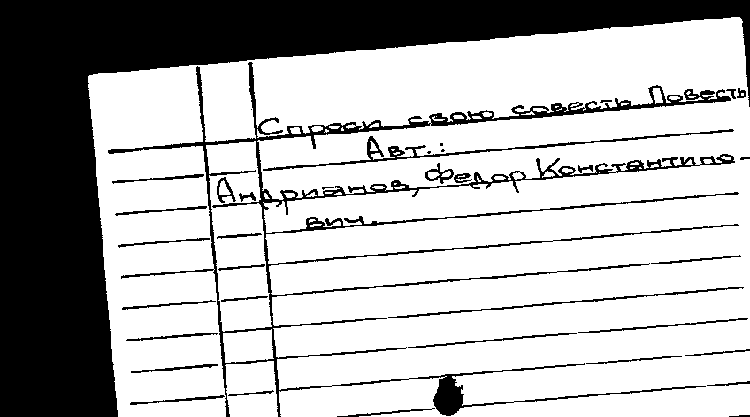 Спроси свою совесть Повесть
Авт.:
Андрианов, Федор Константино-
вич.